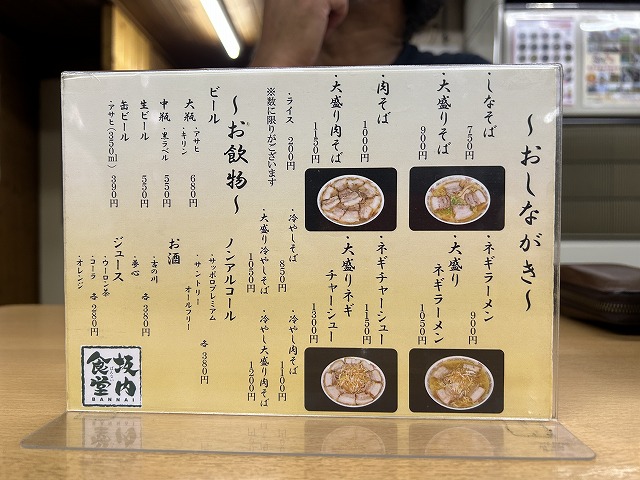 ～おしながき～
・しなそば
750円
・大盛りそば
900円
・肉そば
1000円
・大盛り肉そば
1150円
・ライス 200円
※数に限りがございます
・ネギラーメン
900円
・大盛り
ネギラーメン
1050円
・ネギチャーシュー
1150円
・大盛りネギ
チャーシュー
1300円
・冷やしそば
850円
・大盛り冷やしそば
1050円
・冷やし肉そば
1100円
・冷やし大盛り肉そば
1200円
～お飲物～
ビール
大瓶・アサヒ
・キリン
680円
中瓶・黒ラベル
550円
生ビール
550円
缶ビール
・アサヒ(350ml)
390円
ノンアルコール
・サッポロプレミアム
・サントリー
オールフリー
各380円
お酒
・吉の川
・夢心
各380円
ジュース
・ウーロン茶
・コーラ
・オレンジ
各280円
坂内
食堂
BANNAI